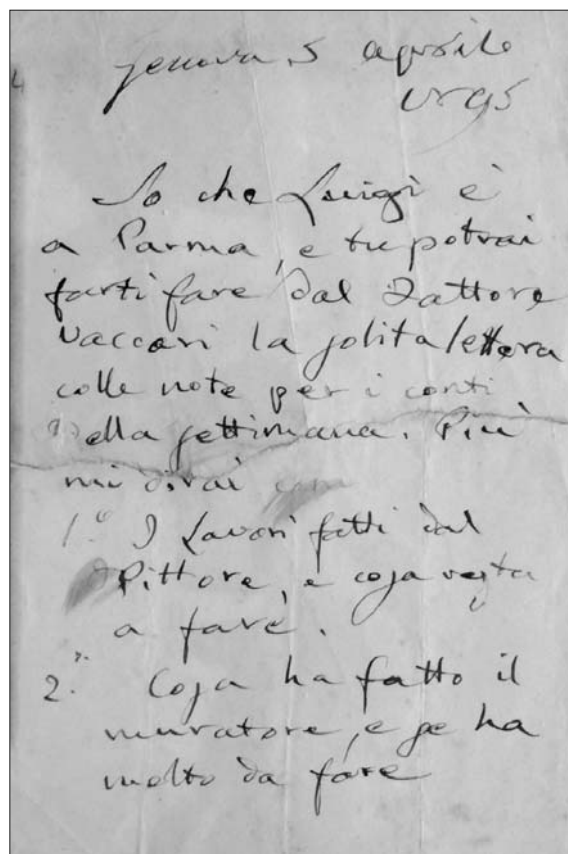 Genova 5 aprile
1895
So che Luigi è
a Parma, e tu potrai
farti fare dal Fattore
Vaccari la solita lettera
colle note per i conti
della settimana. Più
mi dirai
1.º I Lavori fatti dal
Pittore, e cosa resta
a fare.
2.º Cosa ha fatto il
muratore, e se ha
molto da fare